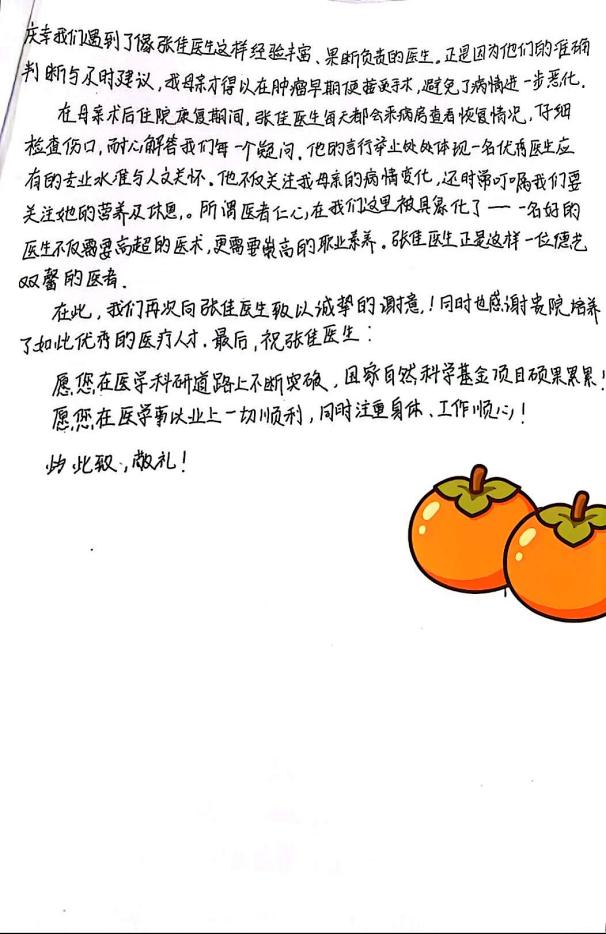 庆幸我们遇到了像张佳医生这样经验丰富、果断负责的医生。正是因为他们的准确
判断与及时建议，我母亲才得以在肿瘤早期便接受手术，避免了病情进一步恶化.
在母亲术后住院康复期间，张佳医生每天都会来病房查看恢复情况，仔细
检查伤口，耐心解答我们每一个疑问。他的言行举止处处体现一名优秀医生应
有的专业水准与人文关怀。他不仅关注我母亲的病情变化，还时常叮嘱我们要
关注她的营养及休息。所谓医者仁心，在我们这里被具象化了——一名好的
医生不仅需要高超的医术，更需要崇高的职业素养。张佳医生正是这样一位德艺
双馨的医者.
在此，我们再次向张佳医生致以诚挚的谢意！同时也感谢贵院培养
了如此优秀的医疗人才.最后，祝张佳医生：
愿您在医学科研道路上不断突破，国家自然科学基金项目硕果累累！
愿您在医学事业上一切顺利，同时注重身体、工作顺心！
此致，敬礼！